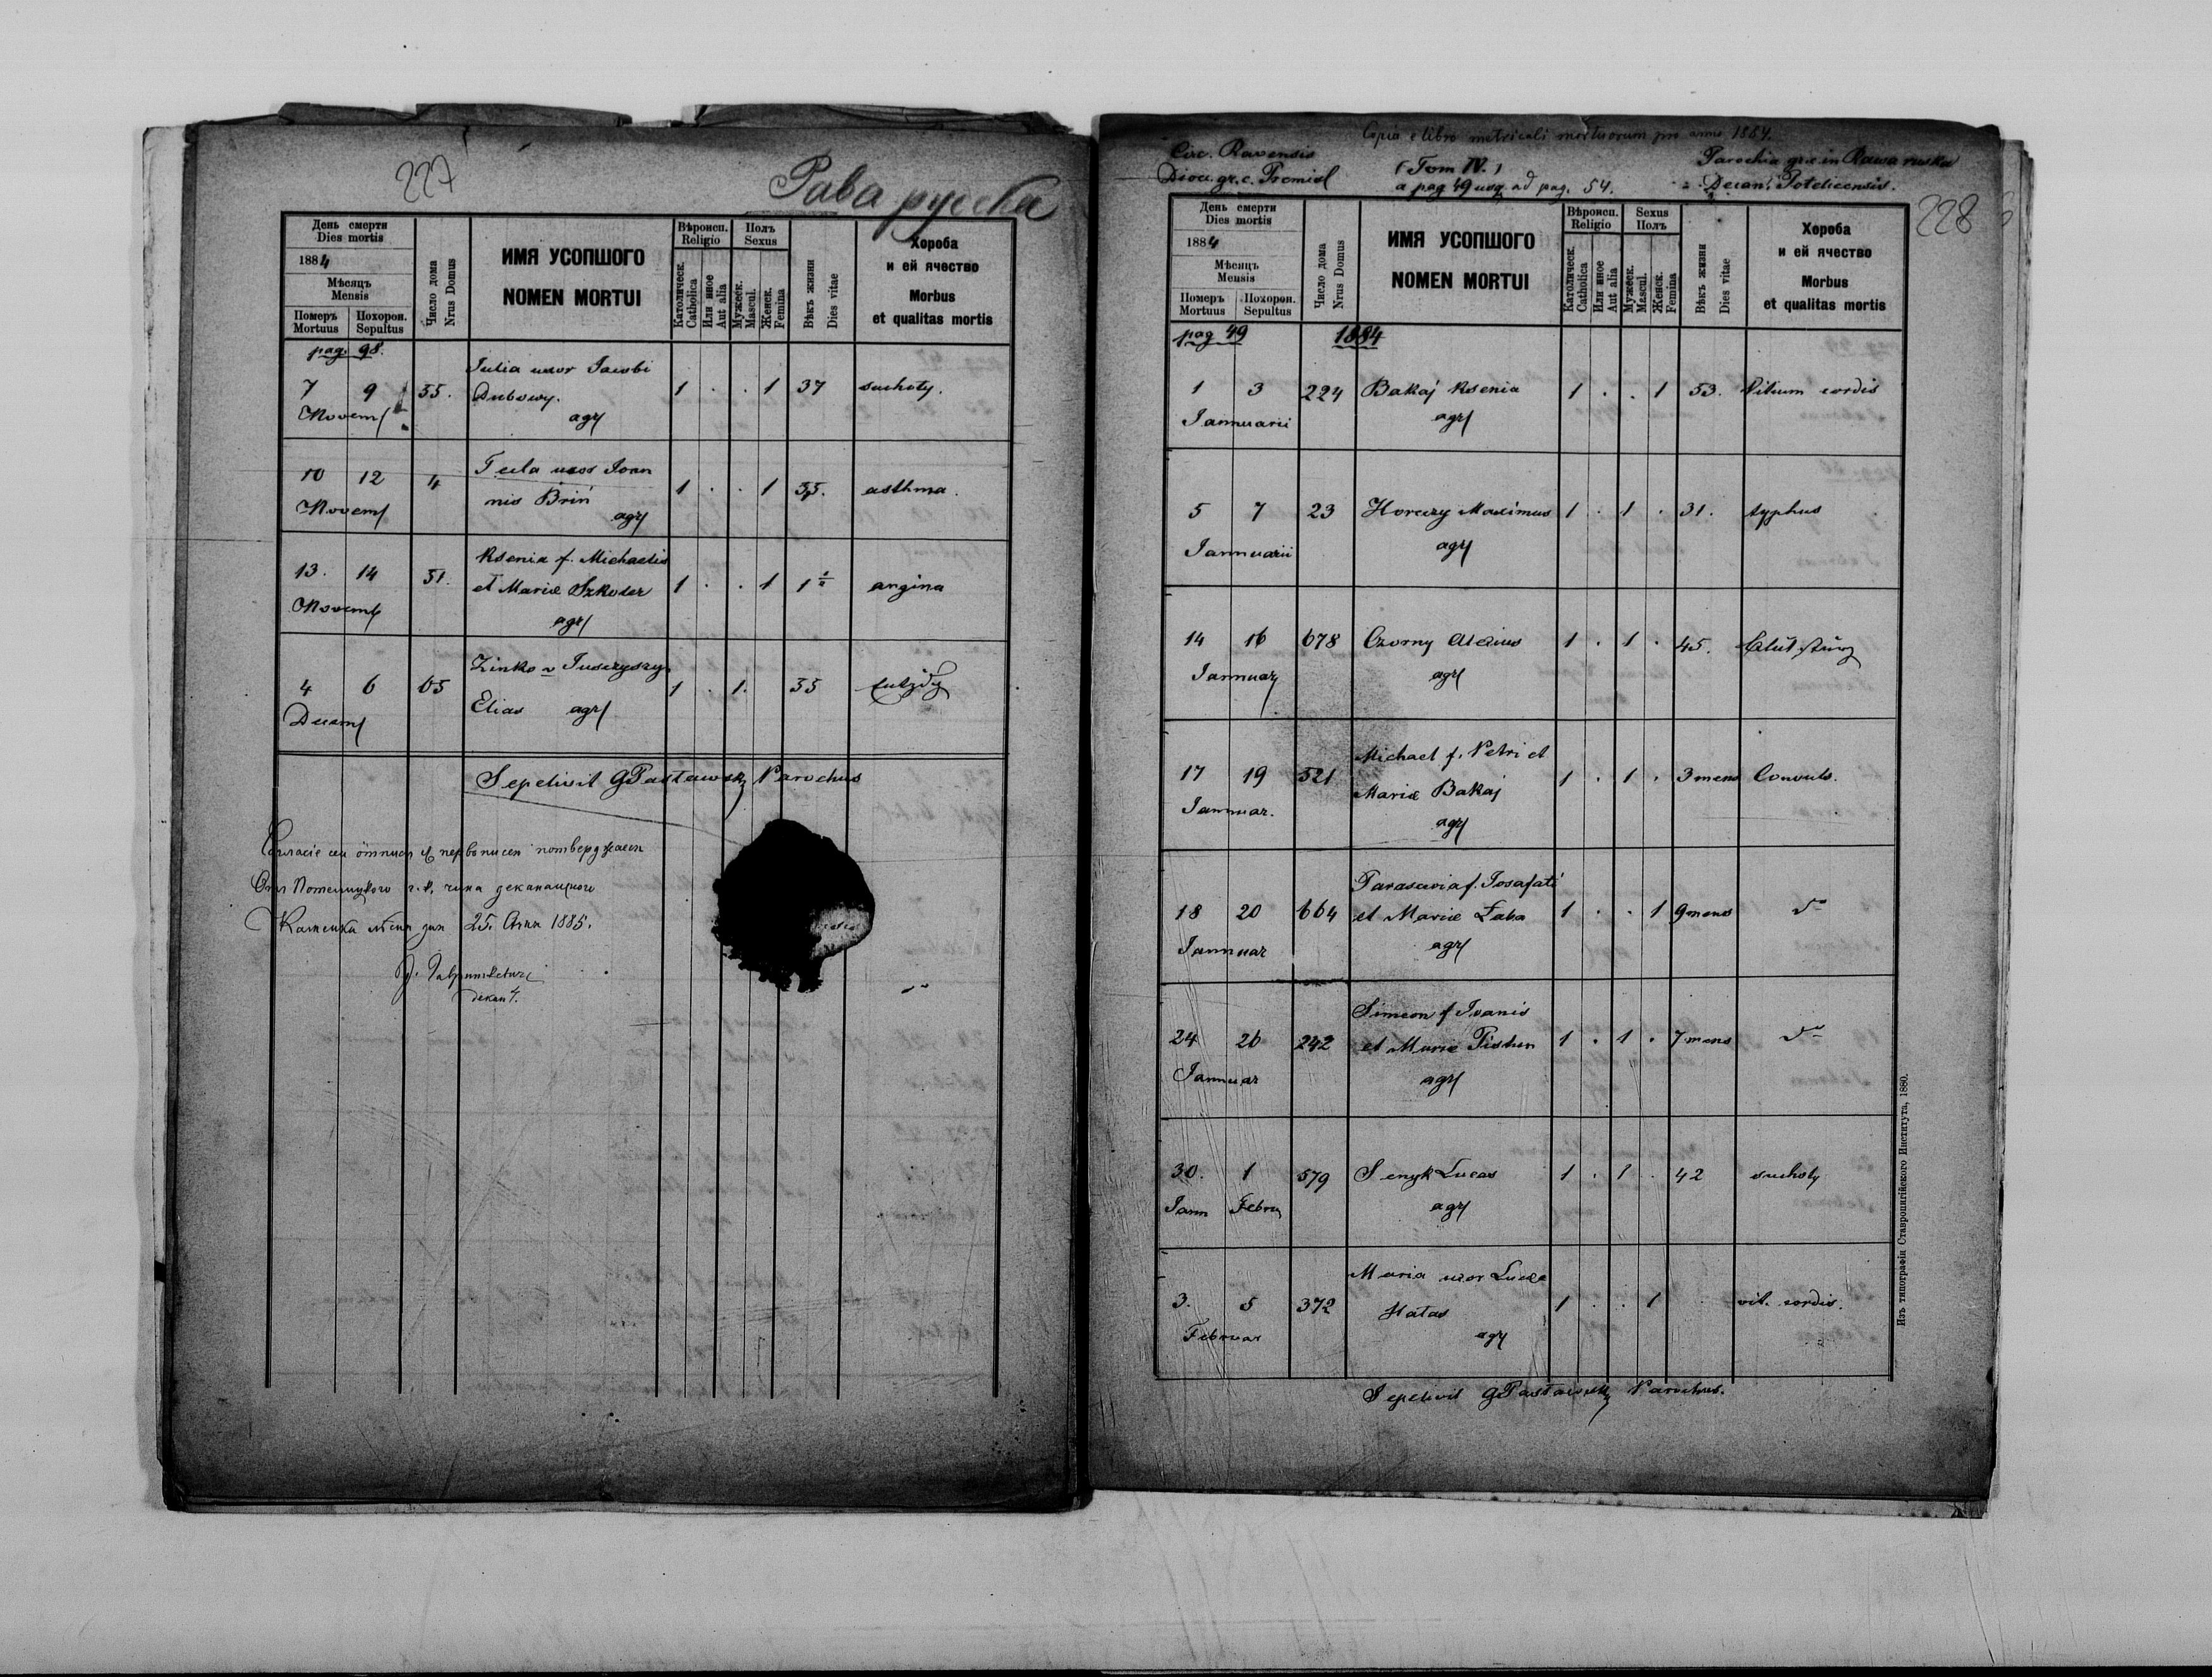 227
Рава русска
День смерти
Dies mortis
1884
Мѣсяцъ
Mensis
Померъ Похорон.
Mortuus Sepultus
Число дома
Nrus Domus
ИМЯ УСОПШОГО
NOMEN MORTUI
Вѣроисп.
Religio
Католическ.
Catholica
Или иное
Aut alia
Полъ
Sexus
Мужеск.
Mascul.
Женск.
Femina
Вѣкъ жизни
Dies vitae
Хороба
и ей ячество
Morbus
et qualitas mortis
pag. 98.
Julia uxor Jacobi
7 9 55. Dubowy. 1 . . 1 37 suchoty.
Novem agr
Tecla uxor Joan
10 12 4 nis Briń 1 . . 1 35. asthma.
Novem agr
Ksenia f. Michaelis
13. 14 51. et Mariæ Szkoder 1 . . 1 1 angina
Novemb agr
Zinko v Juszyszyn
4 6 65 Elias agr 1 . 1. 35
Decem
Sepelivit GPasławsky Parochus
25. 1885.
228
Copia e libro metricali mortuorum pro anno 1884.
Circ. Ravensis
Dioec. gr. c. Premisl
(Tom IV.)
a pag 49 usq ad pag. 54.
Parochia gr. c. in Rawa ruska
Decan. Potelicensis.
День смерти
Dies mortis
1884
Мѣсяцъ
Mensis
Померъ Похорон.
Mortuus Sepultus
Число дома
Nrus Domus
ИМЯ УСОПШОГО
NOMEN MORTUI
Вѣроисп.
Religio
Католическ.
Catholica
Или иное
Aut alia
Sexus
Полъ
Мужеск.
Mascul.
Женск.
Femina
Вѣкъ жизни
Dies vitae
Хороба
и ей ячество
Morbus
et qualitas mortis
pag 49 1884
1 3 224 Bakaj Ksenia 1 . . 1 53. Vitium cordis
Jannuarii agr
5 7 23 Horczy Maximus 1 . 1 . 31. typhus
Jannuarii agr
14 16 678 Czorny Alexius 1 . 1 . 45.
Jannuar agr
Michael f. Petri et
17 19 521 Mariæ Bakaj 1 . 1 . 3 mens Convuls.
Jannuar. agr
Parascevia f. Josafati
18 20 664 et Mariæ Łaba 1 . . 1 9 mens dto
Jannuar agr
Simeon f Ivanis
24 26 242 et Mariæ 1 . 1 . 7 mens dto
Jannuar agr
30. 1 579 Senyk Lucas 1 . 1 . 42 suchoty
Jann Febru agr
Maria uxor Lucæ
3. 5 372 Hatas 1 . . 1 vit. cordis.
Februar agr
Sepelivit GPasławsky Parochus.
Изъ типографіи Ставропигійского Института, 1880.